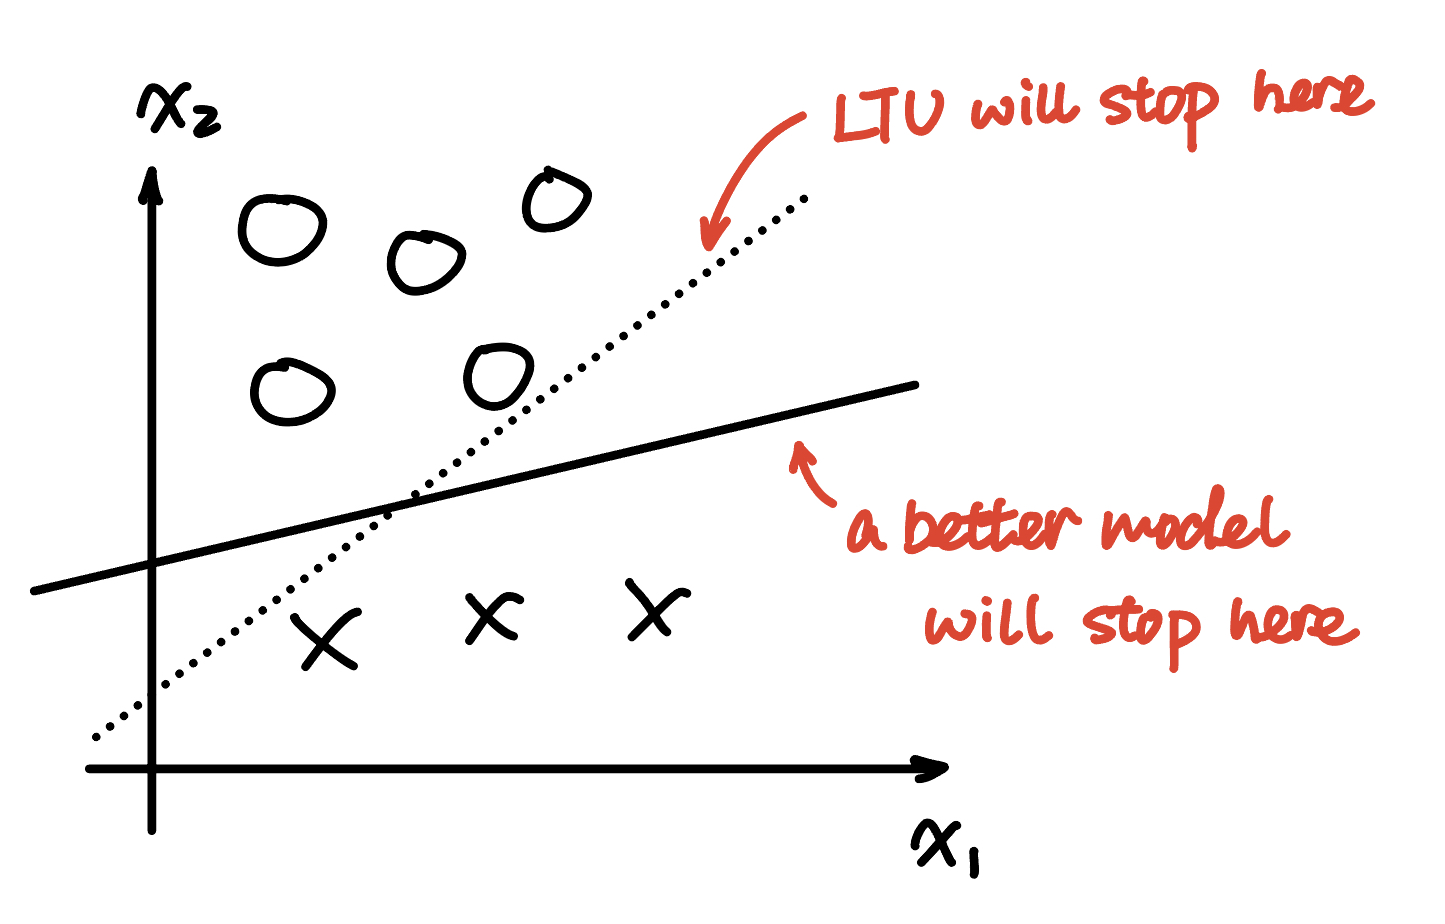 x₂
LTU will stop here
a better model
will stop here
x₁